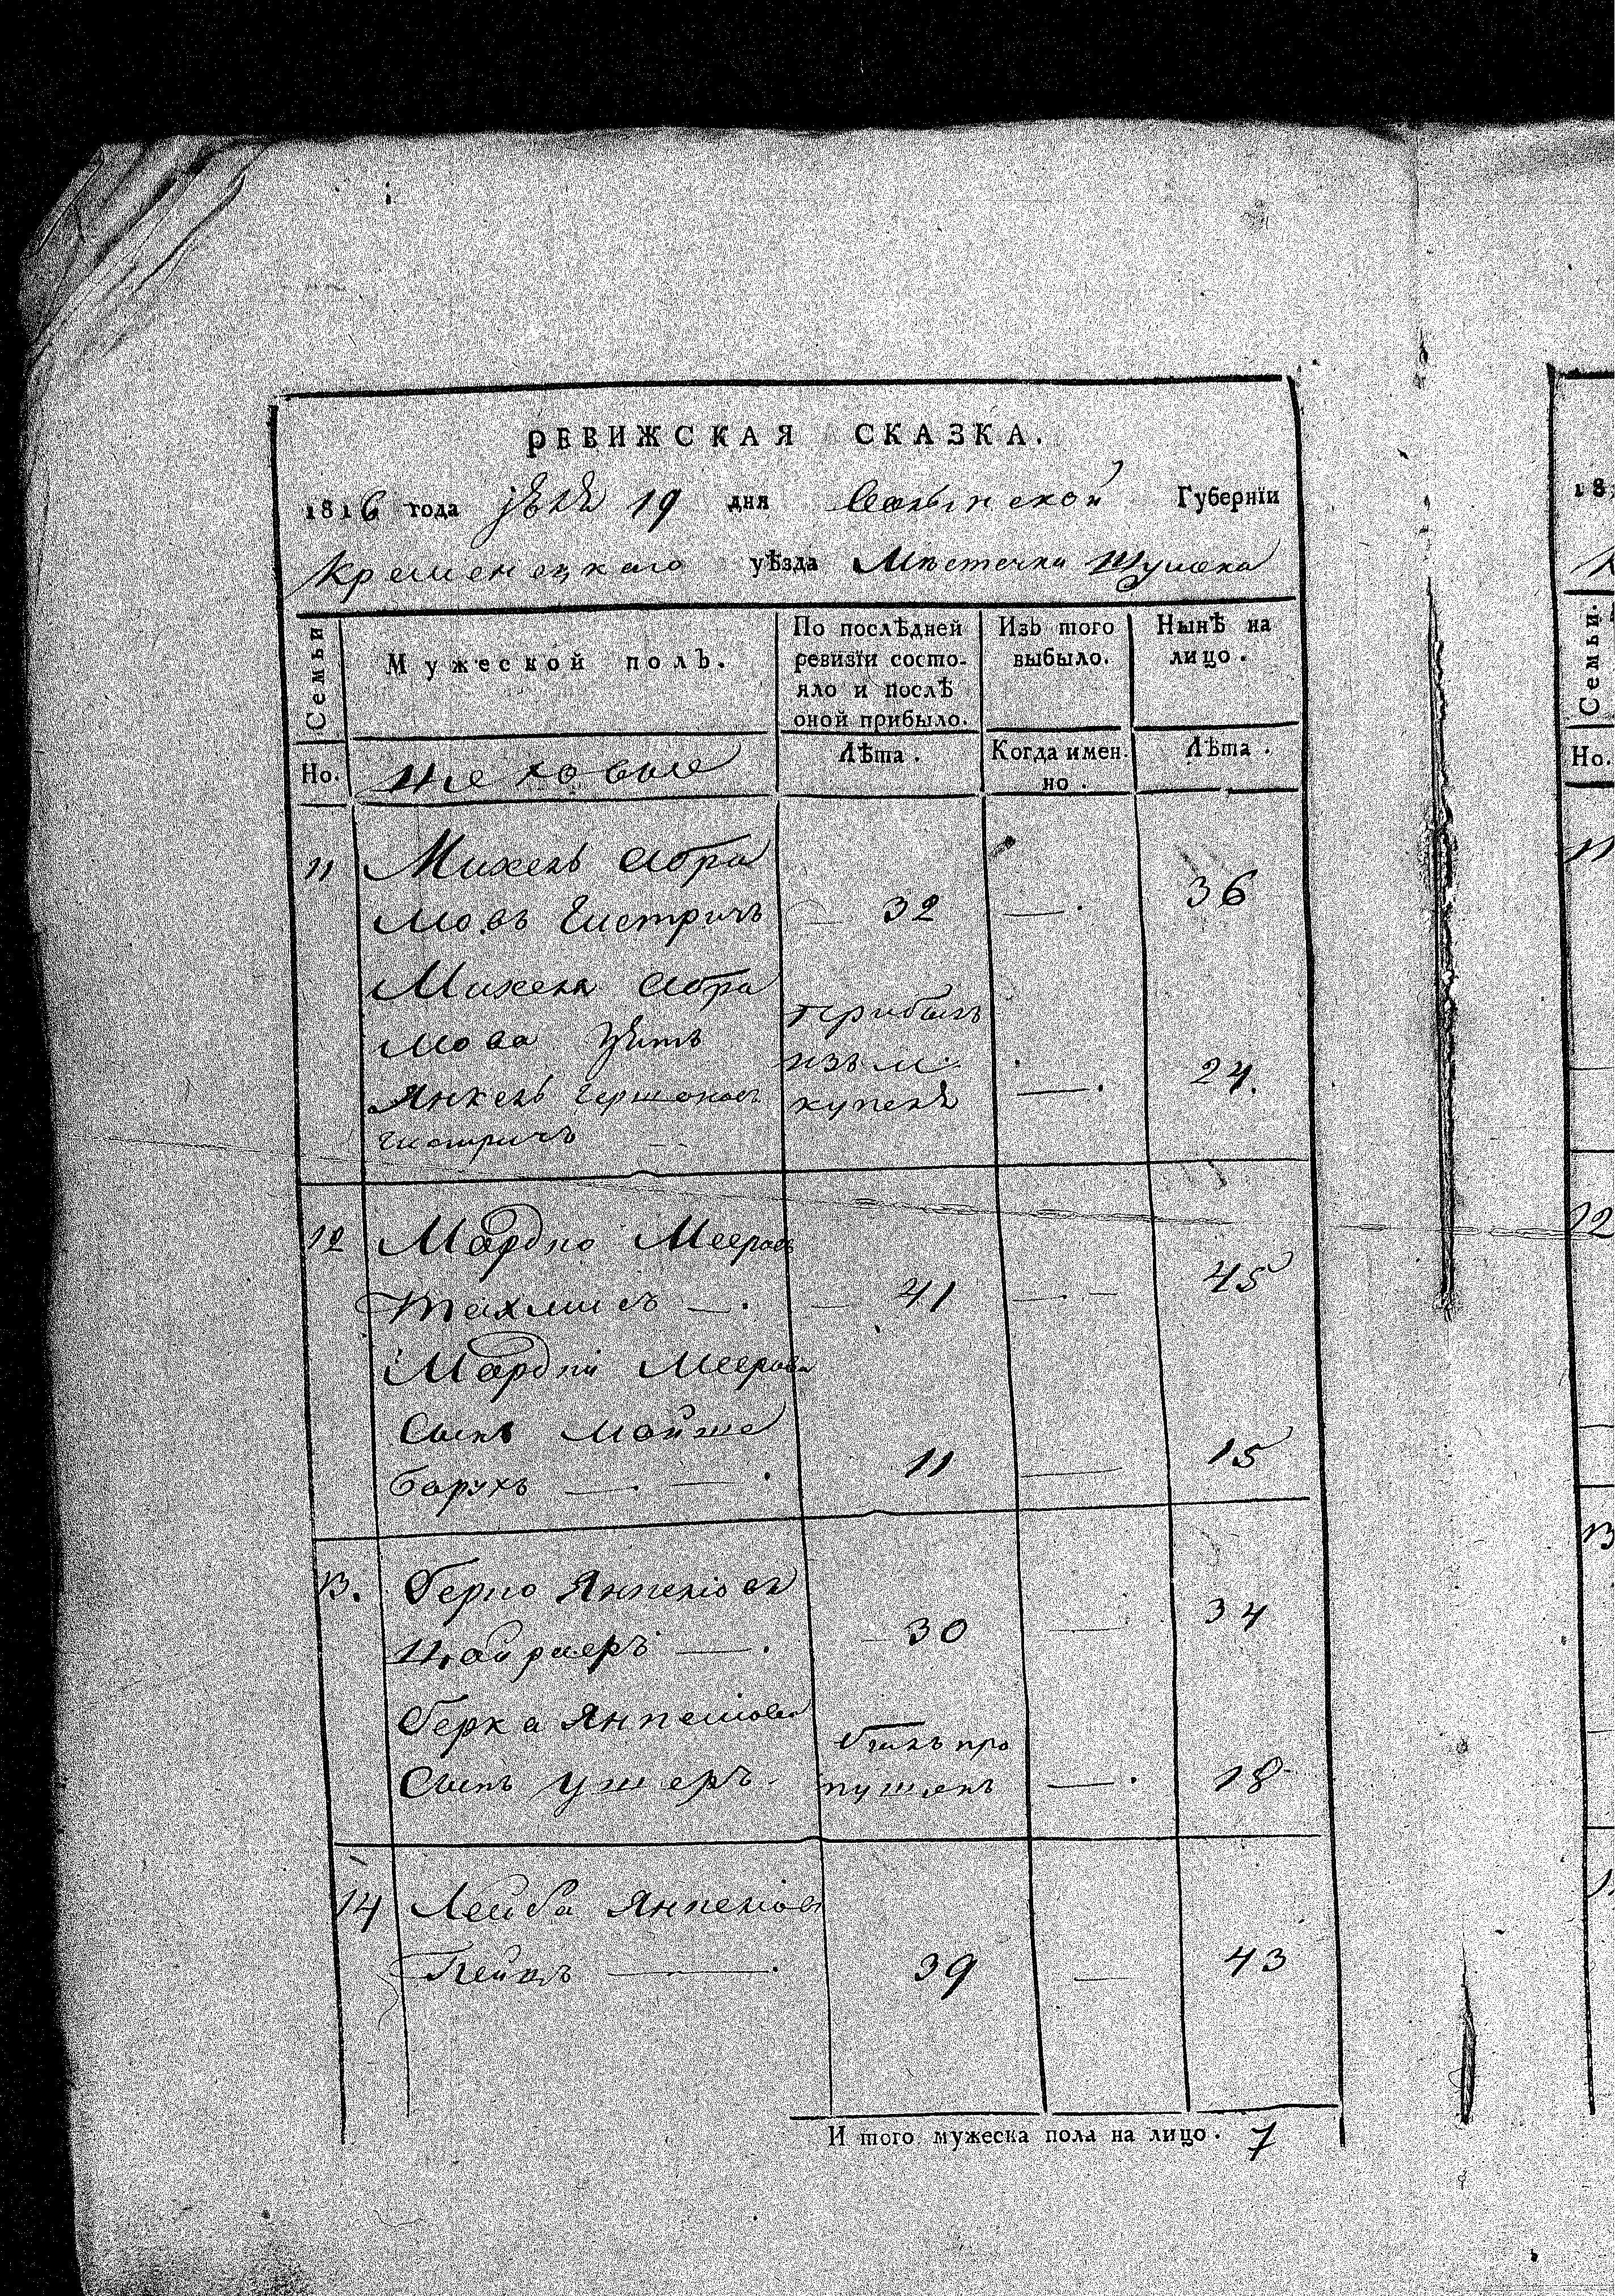 РЕВИЖСКАЯ СКАЗКА.
1816 года 19 дня Волынской Губернїи
Кременецкаго уѣзда Мѣстечка Шумска
Семьи
Мужеской полъ.
По послѣдней ревизїи состояло и послѣ оной прибыло.
Изъ того выбыло.
Нынѣ на лицо.
Но.
Лѣта.
Когда именно.
Лѣта.
11 Михель Абра
мовъ Гистричъ 32 — 36
Михеля Абра
мова Зять прибылъ
Янкель Гершоновъ изъ м. — 24.
Гистричъ купеля
12 Мардко Мееровъ
Тахлисъ — 41 — 45
Мардки Меерова
Сынъ Мойше
Борухъ — 11 — 15
13. Берко Янкелiовъ
30 — 34
Берка Янкелiова былъ про
Сынъ Ушеръ пущенъ — 18
14 Лейба Янкелiовъ
39 — 43
И того мужеска пола на лицо. 7
181
Семьи.
Но.
11
12
13